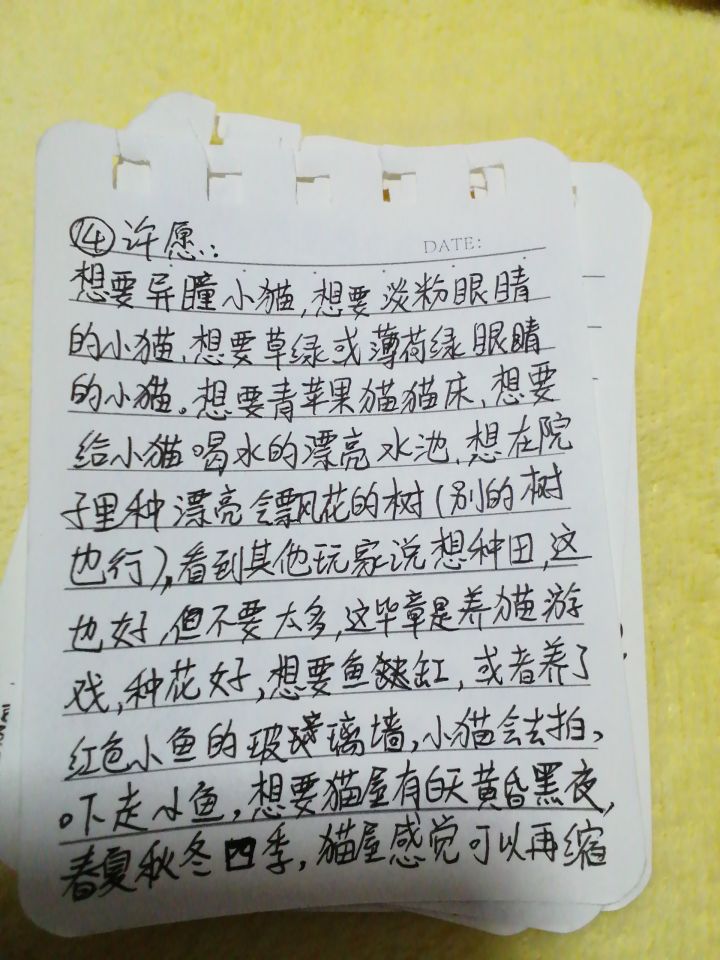 ⑭许愿:
DATE:
想要异瞳小猫,想要淡粉眼睛
的小猫、想要草绿或薄荷绿眼睛
的小猫。想要青苹果猫猫床、想要
给小猫喝水的漂亮水池、想在院
子里种漂亮会飘花的树(别的树
也行),看到其他玩家说想种田,这
也好,但不要太多,这毕章是养猫游
戏,种花好,想要鱼缸,或者养了
红色小鱼的玻璃墙,小猫会去拍,
吓走小鱼,想要猫屋有白天黄昏黑夜,
春夏秋冬四季,猫屋感觉可以再缩